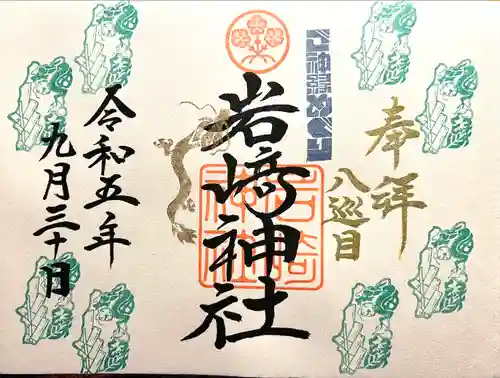 奉拝
八巡目
岩﨑神社
岩崎神社
令和五年
九月三十日